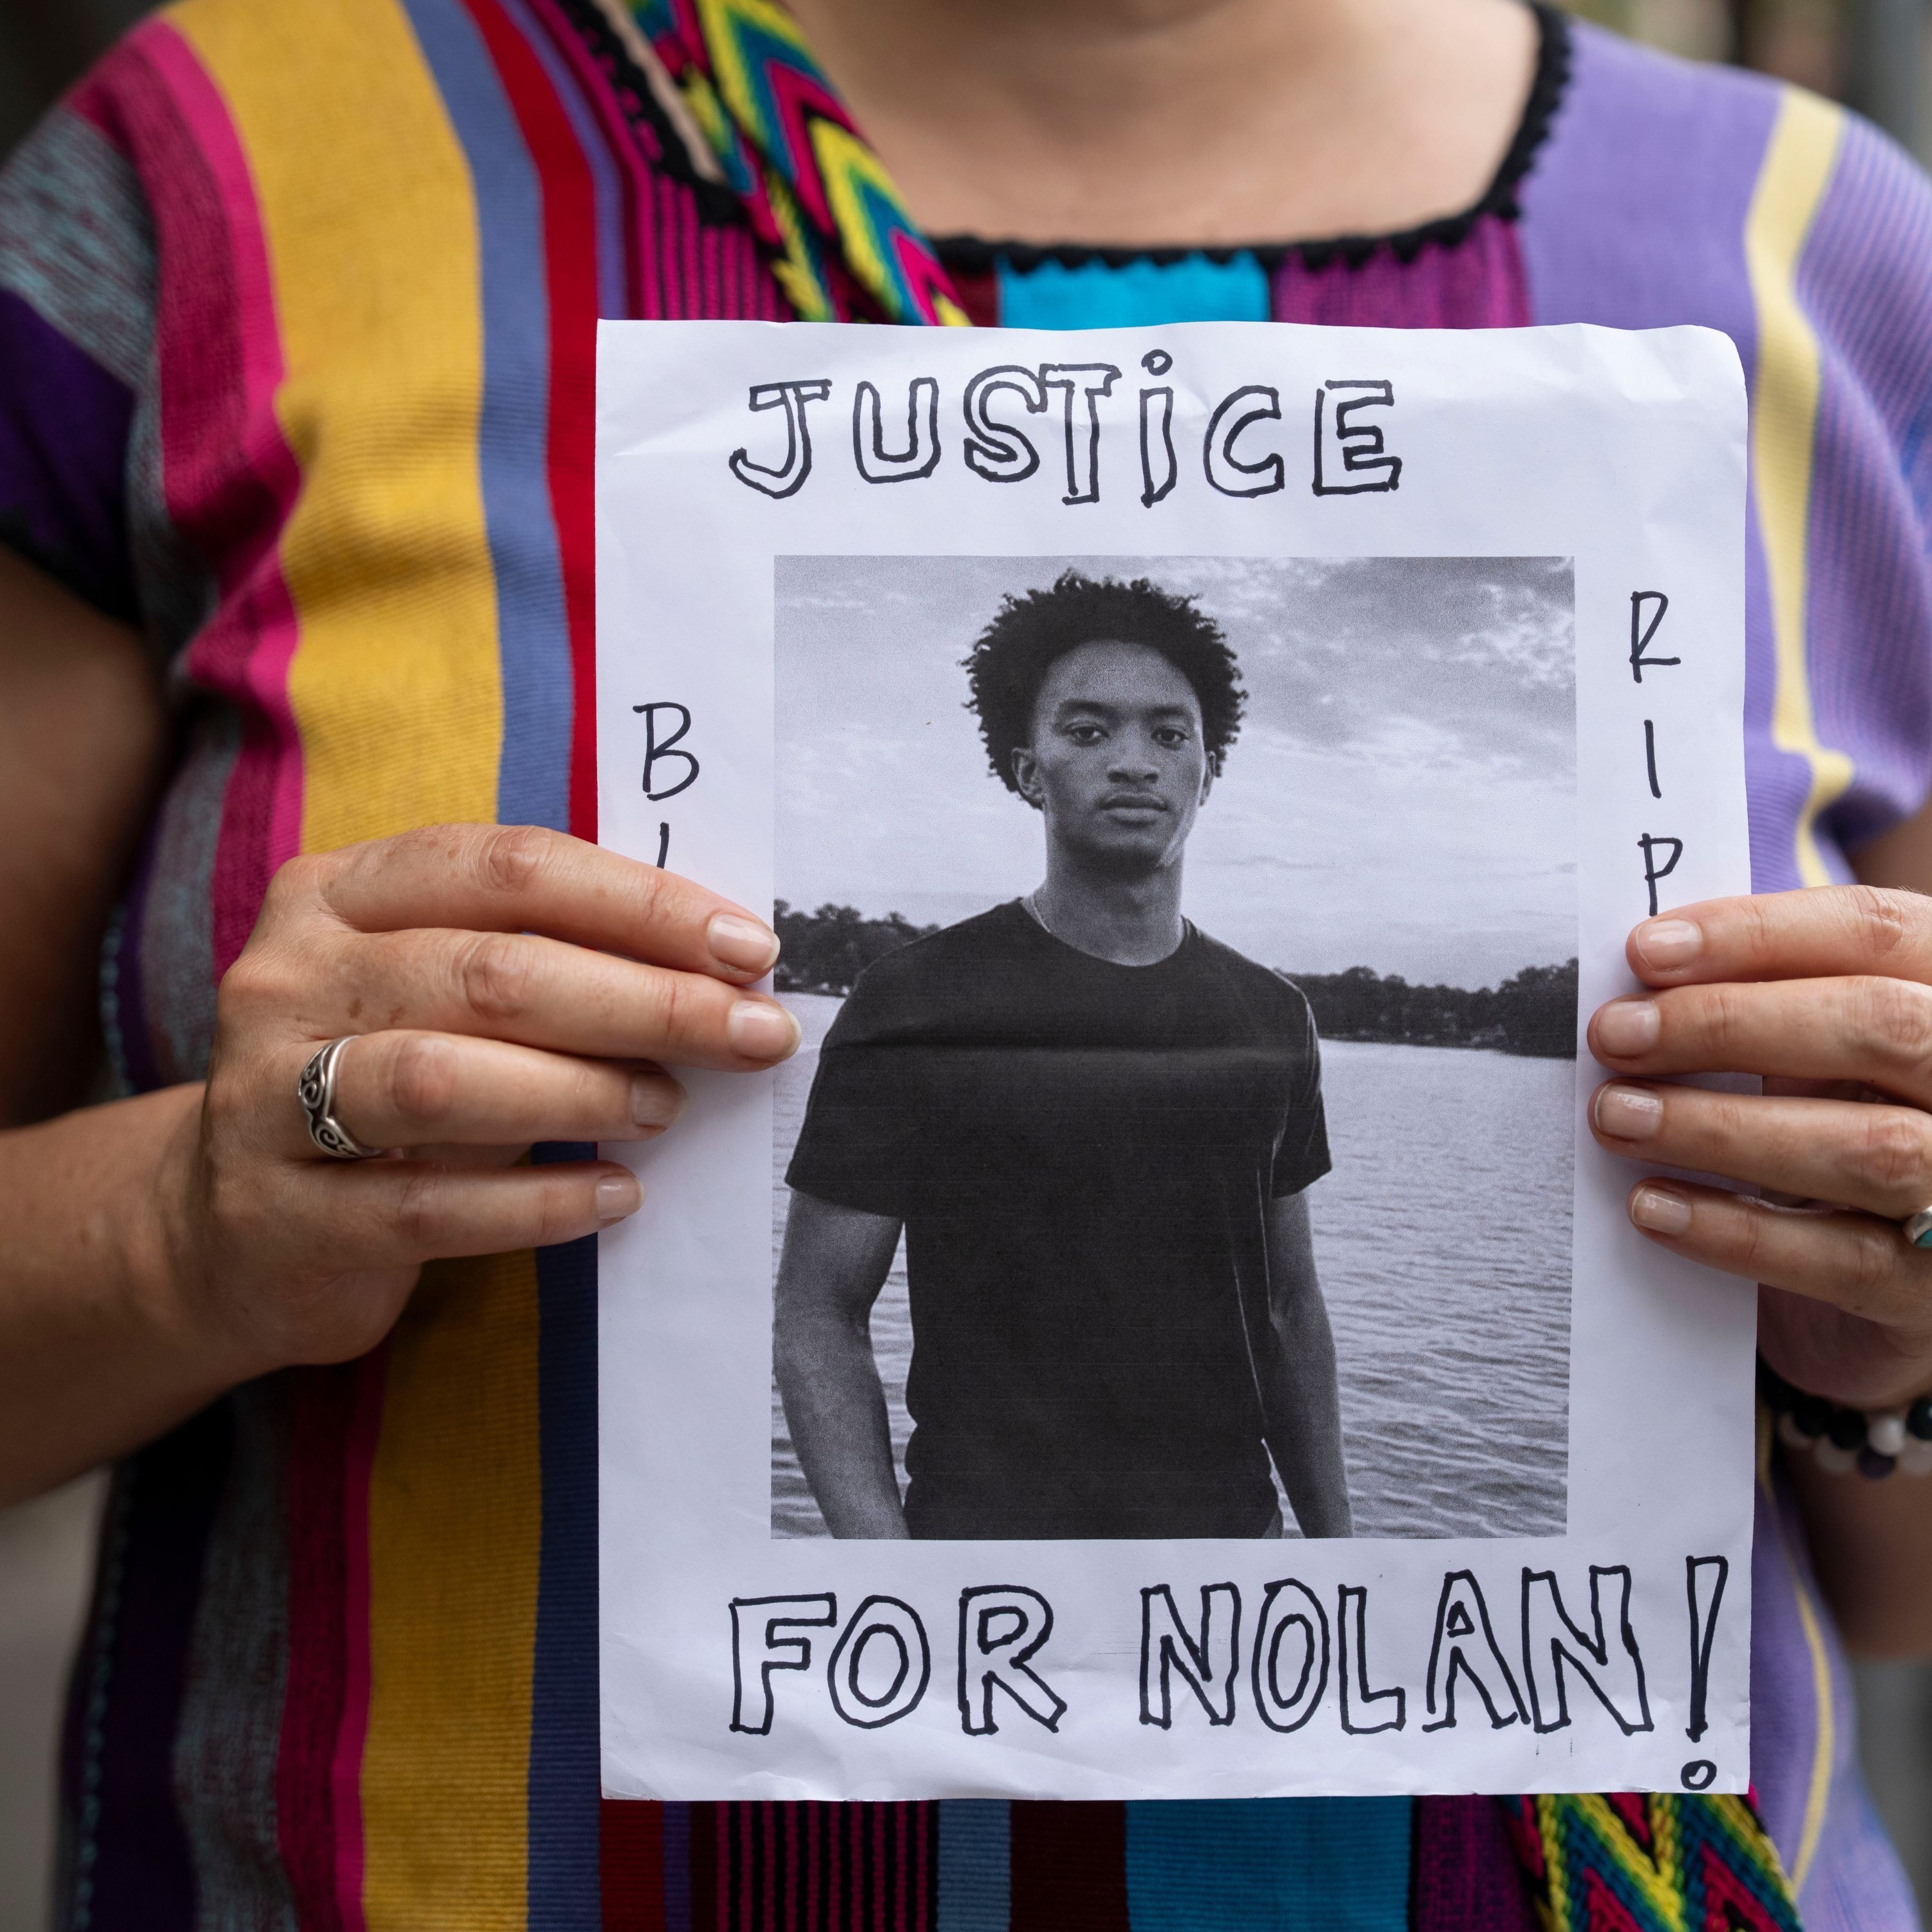 JUSTiCE
RIP
FOR NOLAN!